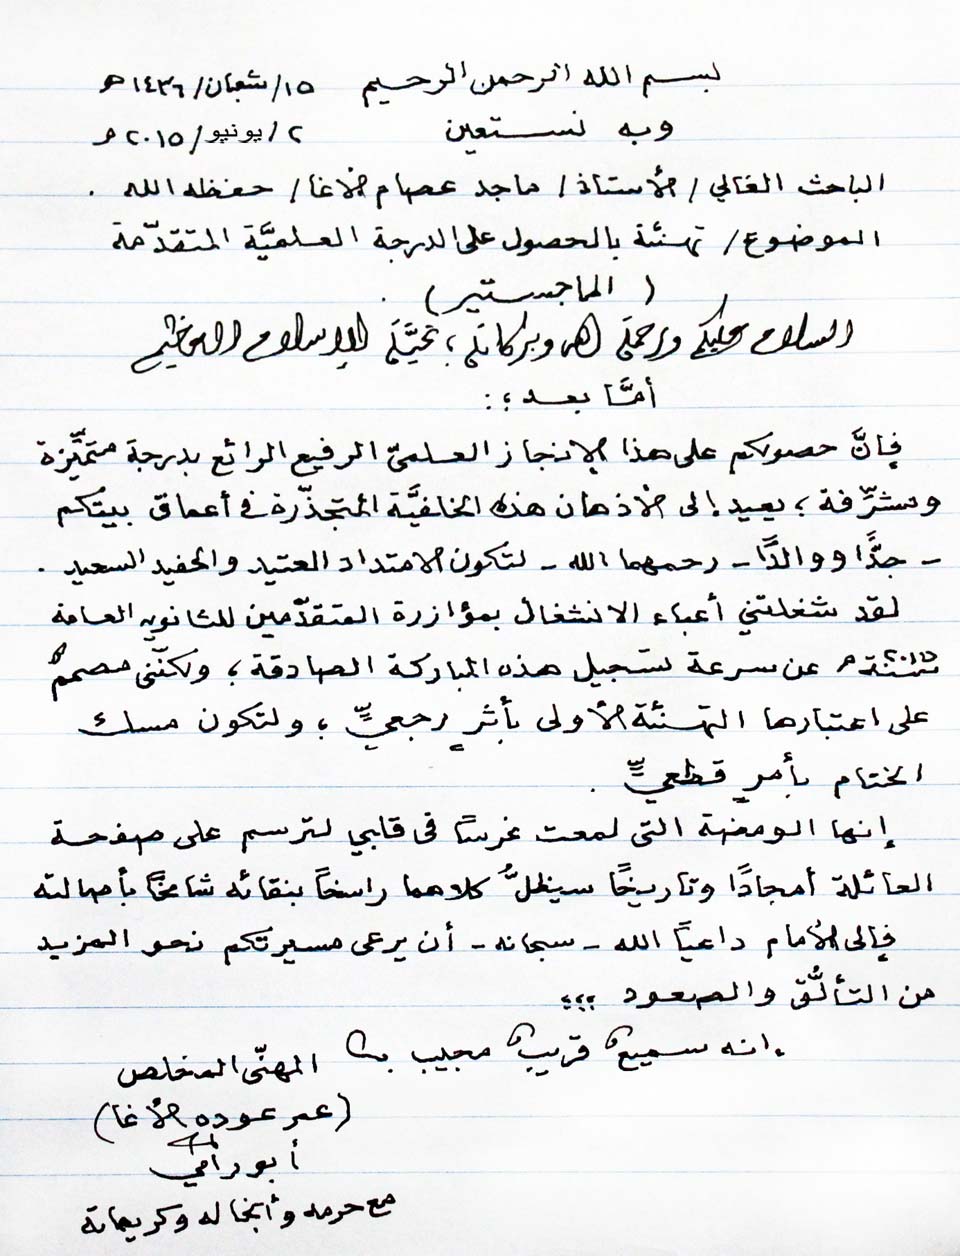 بسم الله الرحمن الرحيم ١٥/شعبان/١٤٣٦هـ
وبه نستعين ٢/يونيو/٢٠١٥م
الباحث الغالي/ الأستاذ/ ماجد عصام الأغا/ حفظه الله .
الموضوع/ تهنئة بالحصول على الدرجة العلميَّة المتقدّمة
(الماجستير) .
السلام عليكم ورحمة الله وبركاته؛ تحيَّة الإسلام العظيم
أمَّا بعد ؛:
فإنَّ حصولكم على هذا الإنجاز العلميّ الرفيع الرائع بدرجة متميَّزة
ومشرِّفة؛ يعيد إلى الأذهان هذه الخلفيَّة المتجذّرة في أعماق بيتكم
- جدًّا ووالدًا - رحمهما الله - لتكون الامتداد العتيد والحفيد السعيد .
لقد شغلتني أعباء الانشغال بمؤازرة المتقدّمين للثانوية العامة
٢٠١٥م عن سرعة تسجيل هذه المباركة الصادقة؛ ولكنّني مصممٌ
على اعتبارها التهنئة الأولى بأثرٍ رجعيٍّ ؛ ولتكون مسك
الختام بأمرٍ قطعيٍّ .
إنها الومضة التي لمعت غرسًا في قلبي لترسم على صفحة
العائلة أمجادًا وتاريخًا سيظلُّ كلاهما راسخاً بنقائه شامخًا بأصالته
فإلى الأمام داعياً الله - سبحانه - أن يرعى مسيرتكم نحو المزيد
من التألُّق والصعود ؛؛؛
إنه سميعٌ قريبٌ مجيب
المهنّئ المخلص
(عمر عوده الأغا)
أبو رامي
مع حرمه وأنجاله وكريماته